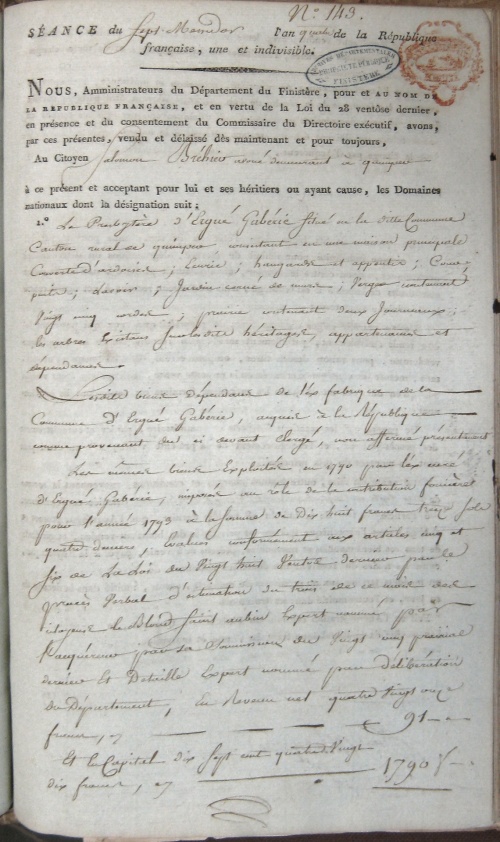 N° 143.
SÉANCE du Sept Messidor l'an quatre de la République
française, une et indivisible.
ARCHIVES DÉPARTEMENTALES
PROPRIÉTÉ PUBLIQUE
FINISTÈRE
NOUS, Amministrateurs du Département du Finistère, pour et AU NOM DE
LA RÉPUBLIQUE FRANÇAISE, et en vertu de la Loi du 28 ventôse dernier,
en présence et du consentement du Commissaire du Directoire exécutif, avons,
par ces présentes, vendu et délaissé dès maintenant et pour toujours,
Au Citoyen Salomon Bréhier avoué demeurant à quimper
à ce présent et acceptant pour lui et ses héritiers ou ayant cause, les Domaines
nationaux dont la désignation suit ;
1.° Le Presbytère d'Ergué Gabéric situé en la ditte Commune
Canton rural de quimper consistant en une maison principale
Couverte d'ardoise ; Ecurie ; hangards et appentis ; Cour ;
puits ; Lavoir ; Jardin cerné de murs ; Verger contenant
Vingt cinq cordes ; prairie contenant deux Journeaux ;
les arbres Existans sur les dits héritages, appartenances et
dépendances.
Lesdits biens dépendants de l'ex fabrique de la
Commune d'Ergué Gabéric, acquis à la République
comme provenant du ci devant Clergé, non affermé présentement
Les mêmes biens Exploités en 1790 par l'ex curé
d'Ergué Gabéric, imposés au rôle de la contribution foncière
pour l'année 1793 à la somme de Dix huit francs treize sols
quatre deniers, Evalués conformément aux articles cinq et
six de La Loi du Vingt huit Ventôse dernier par le
procès Verbal d'estimation du trois de ce mois des
citoyens Le Blond Saint aubin Expert nommé par
l'acquéreur par sa Soumission du Vingt cinq prairial
dernier Et Detaille Expert nommé par délibération
du Département, En Revenu net quatre Vingt onze
francs, 91
Et le Capital dix Sept cent quatre Vingt
dix francs, 1790